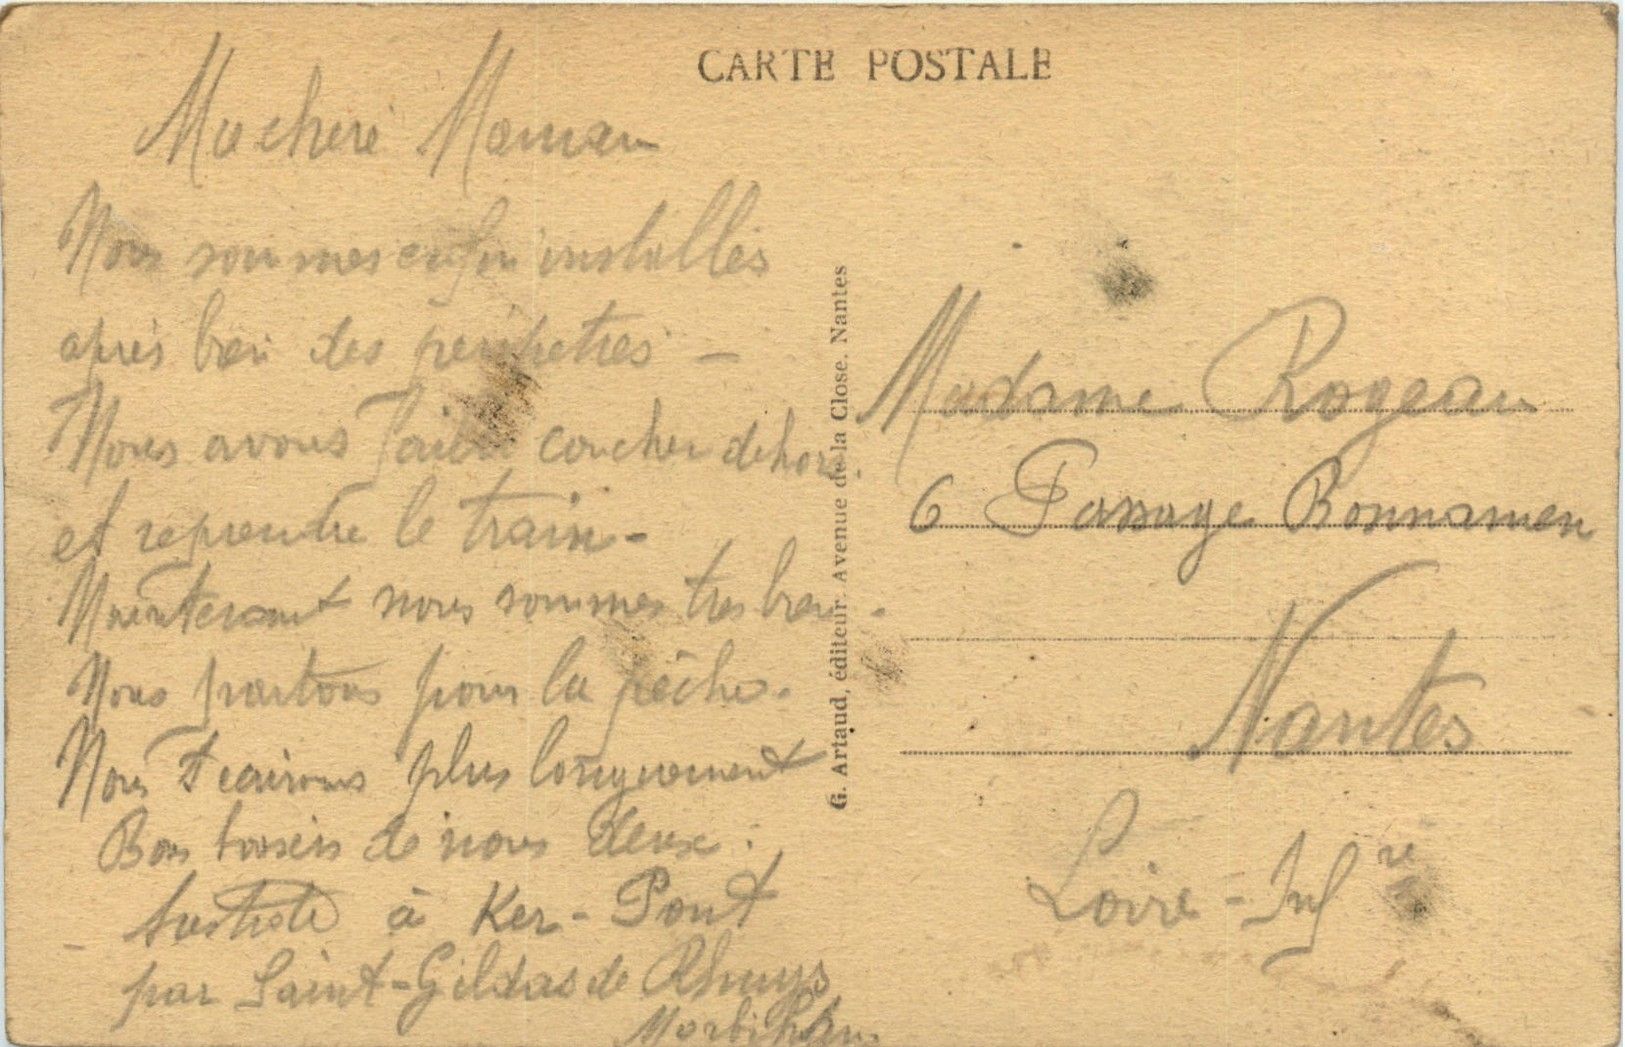 CARTE POSTALE
Ma chère Maman
Nous sommes enfin installés
après bien des peripeties –
Nous avons failli coucher dehors.
et reprendre le train –
Maintenant nous sommes tres bien.
Nous partons pour la pêche.
Nous t'ecrirons plus longuement
Bons baisers de nous deux.
à Ker-Pont
par Saint-Gildas de Rhuys
Morbihan
G. Artaud, éditeur. Avenue de la Close. Nantes
Madame Rogeau
6 Passage Bonnamen
Nantes
Loire-Infre